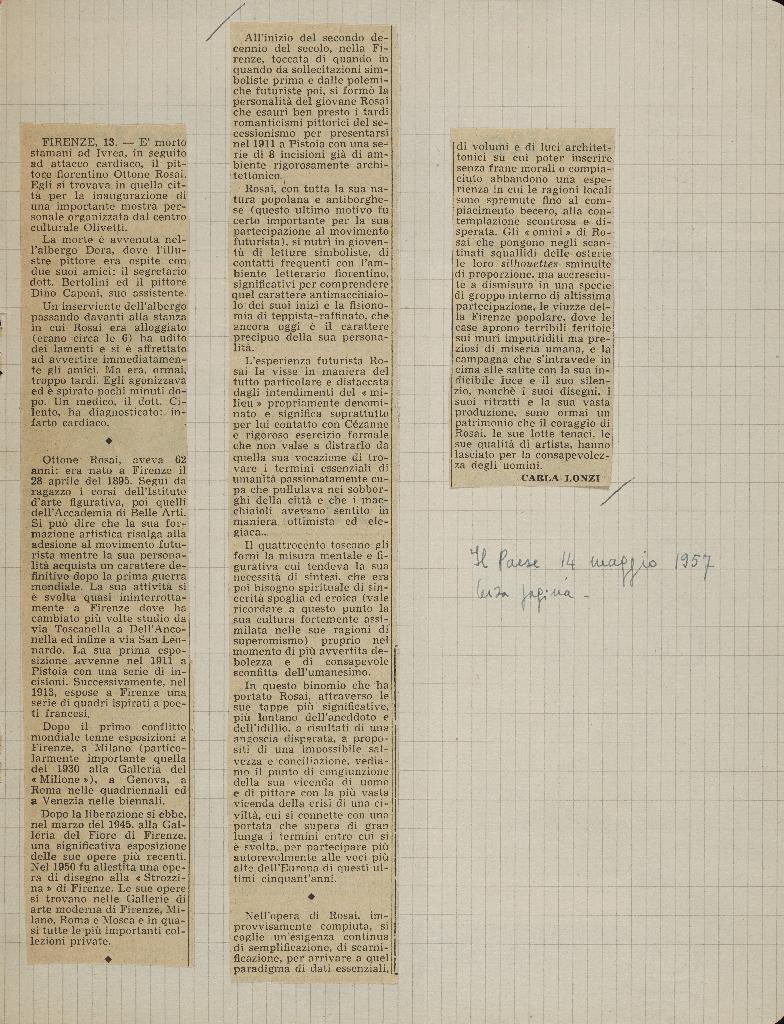 FIRENZE, 13. — E' morto
stamani ad Ivrea, in seguito
ad attacco cardiaco, il pit-
tore fiorentino Ottone Rosai.
Egli si trovava in quella cit-
tà per la inaugurazione di
una importante mostra per-
sonale organizzata dal centro
culturale Olivetti.
La morte è avvenuta nel-
l'albergo Dora, dove l'illu-
stre pittore era ospite con
due suoi amici: il segretario
dott. Bertolini ed il pittore
Dino Caponi, suo assistente.
Un inserviente dell'albergo
passando davanti alla stanza
in cui Rosai era alloggiato
(erano circa le 6) ha udito
dei lamenti e si è affrettato
ad avvertire immediatamen-
te gli amici. Ma era, ormai,
troppo tardi. Egli agonizzava
ed è spirato pochi minuti do-
po. Un medico, il dott. Ci-
lento, ha diagnosticato: in-
farto cardiaco.
Ottone Rosai, aveva 62
anni: era nato a Firenze il
28 aprile del 1895. Seguì da
ragazzo i corsi dell'Istituto
d'arte figurativa, poi quelli
dell'Accademia di Belle Arti.
Si può dire che la sua for-
mazione artistica risalga alla
adesione al movimento futu-
rista mentre la sua persona-
lità acquista un carattere de-
finitivo dopo la prima guerra
mondiale. La sua attività si
è svolta quasi ininterrotta-
mente a Firenze dove ha
cambiato più volte studio da
via Toscanella a Dell'Anco-
nella ed infine a via San Leo-
nardo. La sua prima espo-
sizione avvenne nel 1911 a
Pistoia con una serie di in-
cisioni. Successivamente, nel
1913, espose a Firenze una
serie di quadri ispirati a poe-
ti francesi.
Dopo il primo conflitto
mondiale tenne esposizioni a
Firenze, a Milano (partico-
larmente importante quella
del 1930 alla Galleria del
« Milione »), a Genova, a
Roma nelle quadriennali ed
a Venezia nelle biennali.
Dopo la liberazione si ebbe,
nel marzo del 1945, alla Gal-
leria del Fiore di Firenze,
una significativa esposizione
delle sue opere più recenti.
Nel 1950 fu allestita una ope-
ra di disegno alla « Strozzi-
na » di Firenze. Le sue opere
si trovano nelle Gallerie di
arte moderna di Firenze, Mi-
lano, Roma e Mosca e in qua-
si tutte le più importanti col-
lezioni private.
All'inizio del secondo de-
cennio del secolo, nella Fi-
renze, toccata di quando in
quando da sollecitazioni sim-
boliste prima e dalle polemi-
che futuriste poi, si formò la
personalità del giovane Rosai
che esaurì ben presto i tardi
romanticismi pittorici del se-
cessionismo per presentarsi
nel 1911 a Pistoia con una se-
rie di 8 incisioni già di am-
biente rigorosamente archi-
tettonico.
Rosai, con tutta la sua na-
tura popolana e antiborghe-
se (questo ultimo motivo fu
certo importante per la sua
partecipazione al movimento
futurista), si nutrì in gioven-
tù di letture simboliste, di
contatti frequenti con l'am-
biente letterario fiorentino,
significativi per comprendere
quel carattere antimacchiaio-
lo dei suoi inizi e la fisiono-
mia di teppista-raffinato, che
ancora oggi è il carattere
precipuo della sua persona-
lità.
L'esperienza futurista Ro-
sai la visse in maniera del
tutto particolare e distaccata
dagli intendimenti del « mi-
lieu » propriamente denomi-
nato e significa soprattutto
per lui contatto con Cézanne
e rigoroso esercizio formale
che non valse a distrarlo da
quella sua vocazione di tro-
vare i termini essenziali di
umanità passionatamente cu-
pa che pullulava nei sobbor-
ghi della città e che i mac-
chiaioli avevano sentito in
maniera ottimista ed ele-
giaca..
Il quattrocento toscano gli
fornì la misura mentale e fi-
gurativa cui tendeva la sua
necessità di sintesi, che era
poi bisogno spirituale di sin-
cerità spoglia ed eroica (vale
ricordare a questo punto la
sua cultura fortemente assi-
milata nelle sue ragioni di
superomismo) proprio nel
momento di più avvertita de-
bolezza e di consapevole
sconfitta dell'umanesimo.
In questo binomio che ha
portato Rosai, attraverso le
sue tappe più significative,
più lontano dell'aneddoto e
dell'idillio, a risultati di una
angoscia disperata, a propo-
siti di una impossibile sal-
vezza e conciliazione, vedia-
mo il punto di congiunzione
della sua vicenda di uomo
e di pittore con la più vasta
vicenda della crisi di una ci-
viltà, cui si connette con una
portata che supera di gran
lunga i termini entro cui si
è svolta, per partecipare più
autorevolmente alle voci più
alte dell'Europa di questi ul-
timi cinquant'anni.
Nell'opera di Rosai, im-
provvisamente compiuta, si
coglie un'esigenza continua
di semplificazione, di scarni-
ficazione, per arrivare a quel
paradigma di dati essenziali,
di volumi e di luci architet-
tonici su cui poter inserire
senza frane morali o compia-
ciuto abbandono una espe-
rienza in cui le ragioni locali
sono spremute fino al com-
piacimento becero, alla con-
templazione scontrosa e di-
sperata. Gli « omini » di Ro-
sai che pongono negli scan-
tinati squallidi delle osterie
le loro silhouettes sminuite
di proporzione, ma accresciu-
te a dismisura in una specie
di groppo interno di altissima
partecipazione, le viuzze del-
la Firenze popolare, dove le
case aprono terribili feritoie
sui muri imputriditi ma pre-
ziosi di miseria umana, e la
campagna che s'intravede in
cima alle salite con la sua in-
dicibile luce e il suo silen-
zio, nonché i suoi disegni, i
suoi ritratti e la sua vasta
produzione, sono ormai un
patrimonio che il coraggio di
Rosai, le sue lotte tenaci, le
sue qualità di artista, hanno
lasciato per la consapevolez-
za degli uomini.
CARLA LONZI
Il Paese 14 maggio 1957
terza pagina -